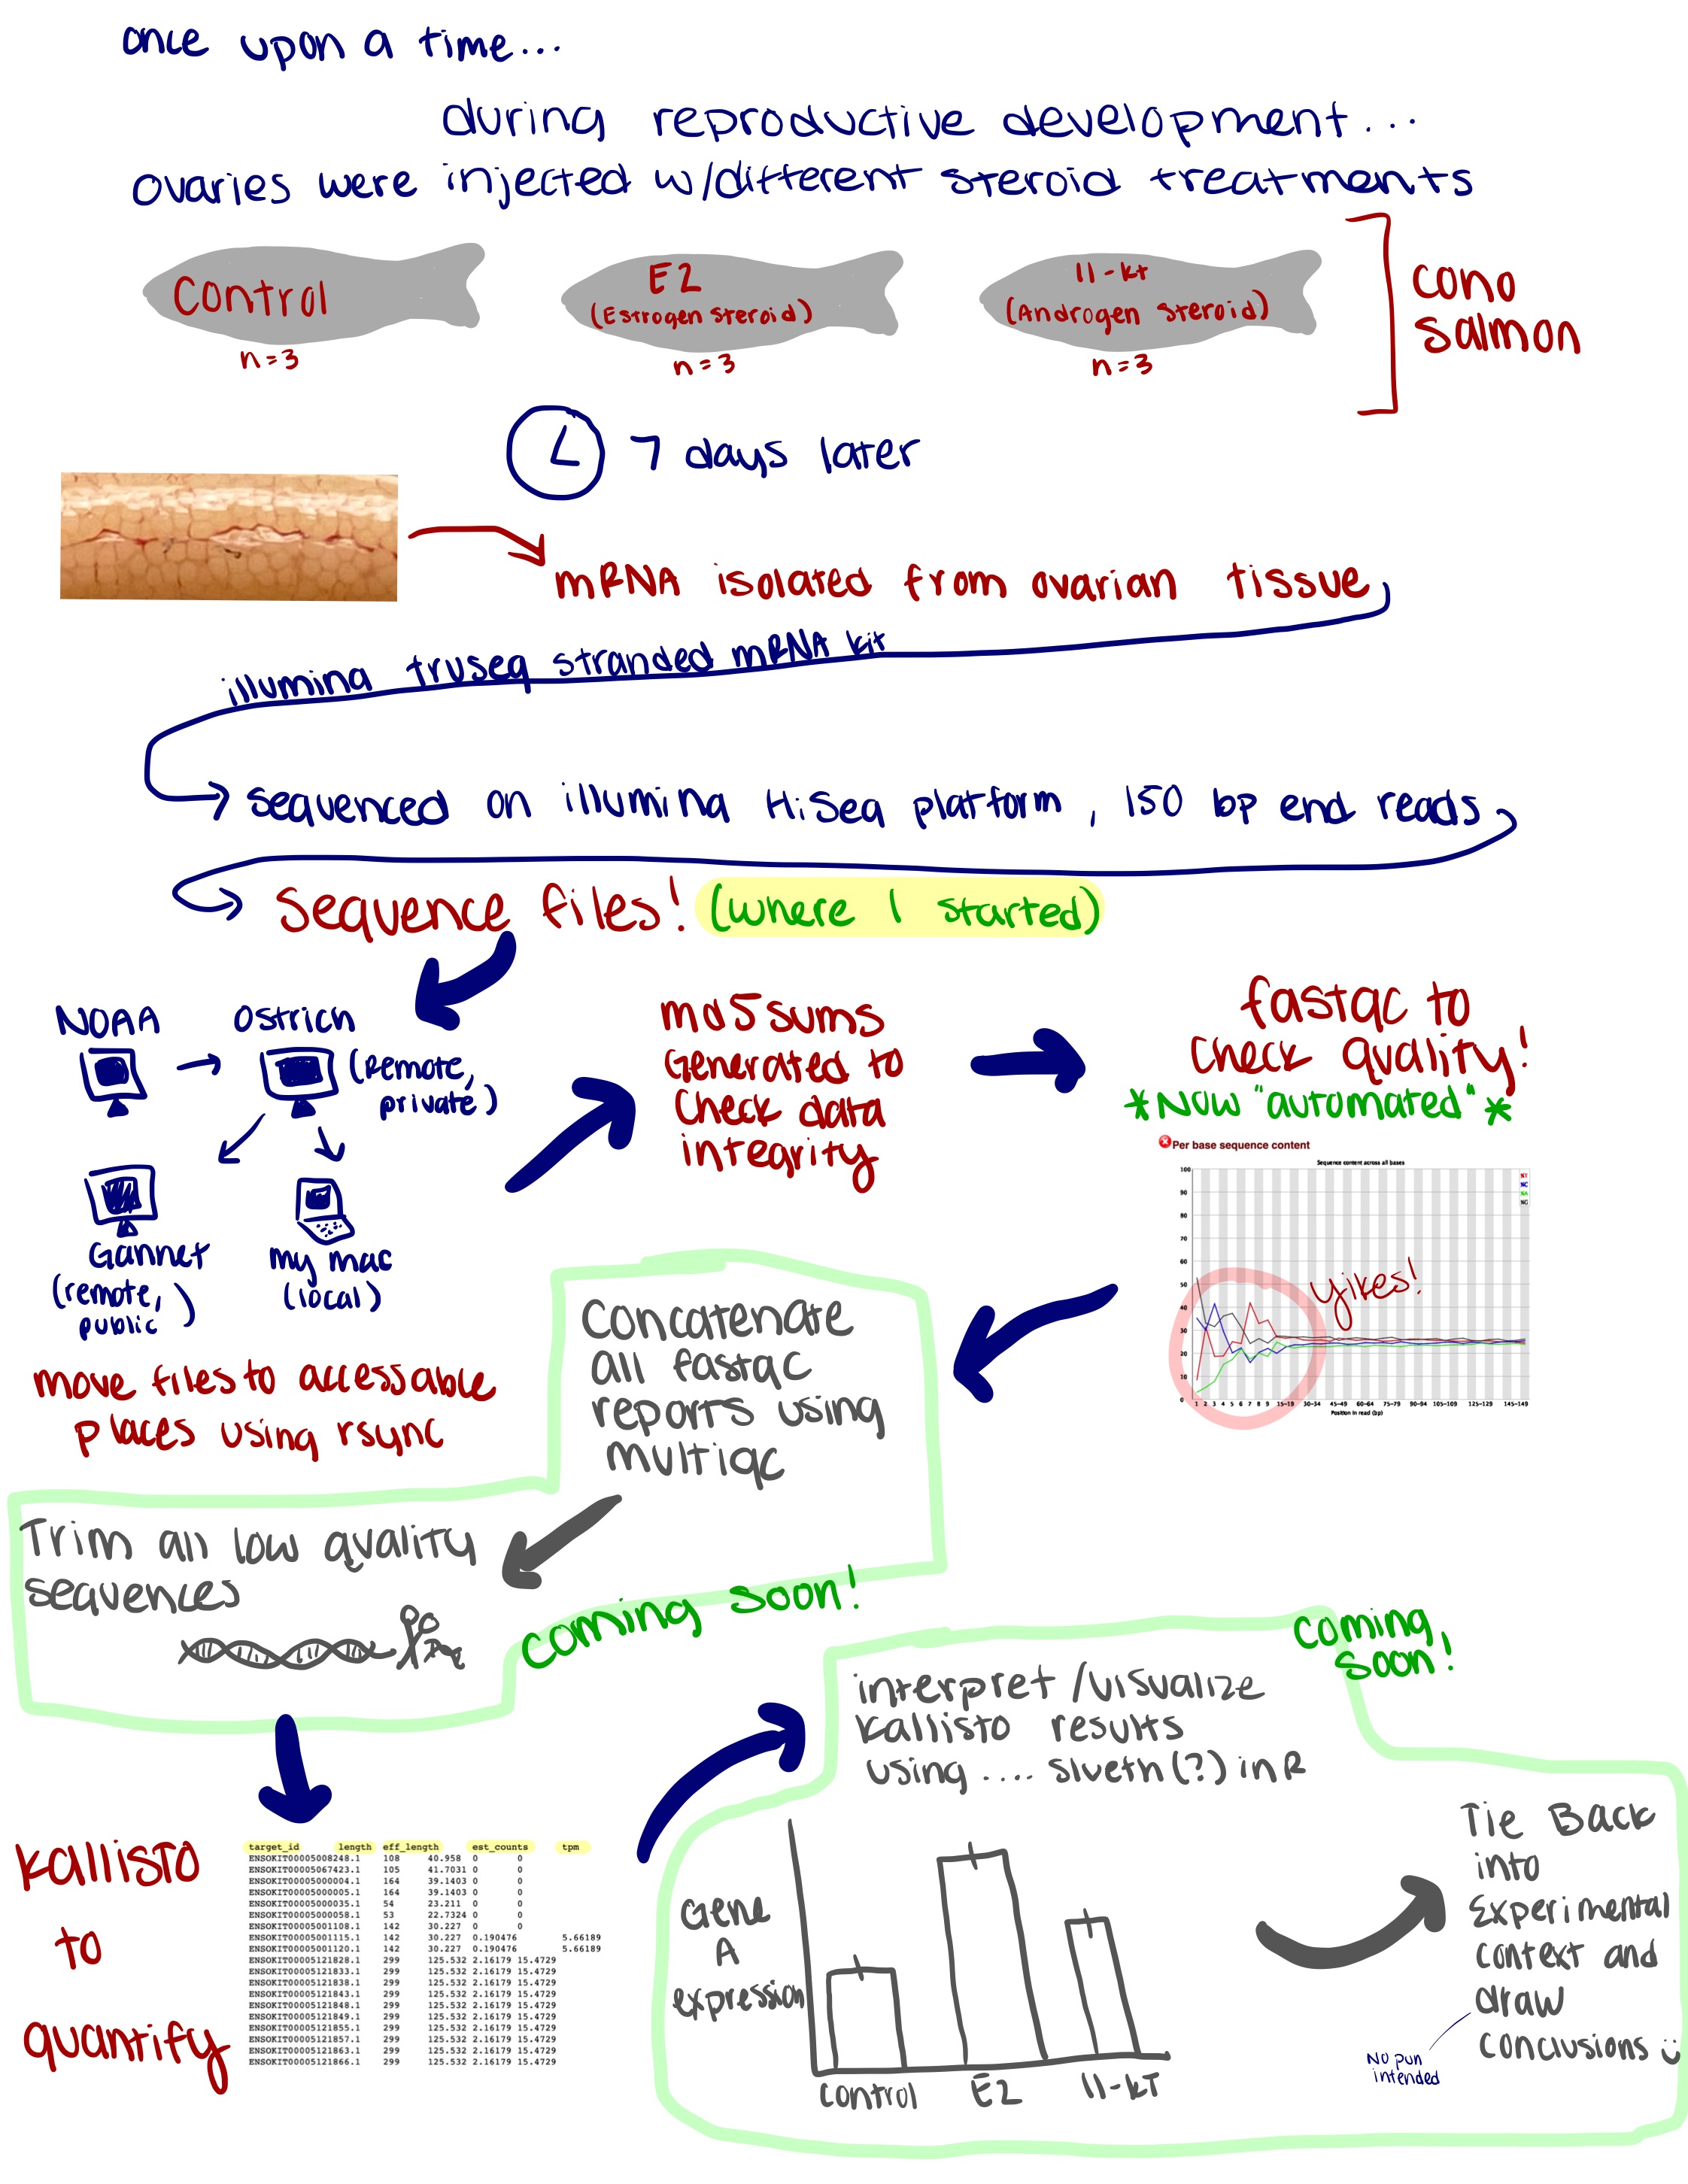 once upon a time...
during reproductive development...
ovaries were injected w/different steroid treatments
Control
n=3
E2
(Estrogen Steroid)
n=3
11-kt
(Androgen Steroid)
n=3
coho
salmon
7 days later
mRNA isolated from ovarian tissue
illumina truseq stranded mRNA kit
sequenced on illumina HiSeq platform, 150 bp end reads
Sequence files! (where I started)
NOAA
Ostrich
(Remote,
private)
Gannet
(remote,
public)
my mac
(local)
move files to accessable
places using rsync
md5sums
Generated to
Check data
integrity
fastqc to
Check quality!
*Now "automated"*
Per base sequence content
Sequence content across all bases
%T
%C
%A
%G
100
90
80
70
60
50
40
30
20
10
0
1 2 3 4 5 6 7 8 9 15-19 30-34 45-49 60-64 75-79 90-94 105-109 125-129 145-149
Position in read (bp)
Yikes!
Concatenate
all fastqc
reports using
multiqc
Trim all low quality
sequences
coming soon!
Kallisto
to
quantify
target_id length eff_length est_counts tpm
ENSOKIT00005008248.1 108 40.958 0 0
ENSOKIT00005067423.1 105 41.7031 0 0
ENSOKIT00005000004.1 164 39.1403 0 0
ENSOKIT00005000005.1 164 39.1403 0 0
ENSOKIT00005000035.1 54 23.211 0 0
ENSOKIT00005000058.1 53 22.7324 0 0
ENSOKIT00005001108.1 142 30.227 0 0
ENSOKIT00005001115.1 142 30.227 0.190476 5.66189
ENSOKIT00005001120.1 142 30.227 0.190476 5.66189
ENSOKIT00005121828.1 299 125.532 2.16179 15.4729
ENSOKIT00005121833.1 299 125.532 2.16179 15.4729
ENSOKIT00005121838.1 299 125.532 2.16179 15.4729
ENSOKIT00005121843.1 299 125.532 2.16179 15.4729
ENSOKIT00005121848.1 299 125.532 2.16179 15.4729
ENSOKIT00005121849.1 299 125.532 2.16179 15.4729
ENSOKIT00005121855.1 299 125.532 2.16179 15.4729
ENSOKIT00005121857.1 299 125.532 2.16179 15.4729
ENSOKIT00005121863.1 299 125.532 2.16179 15.4729
ENSOKIT00005121866.1 299 125.532 2.16179 15.4729
coming
soon!
interpret/visualize
kallisto results
using .... slueth(?) in R
Gene
A
expression
control
E2
11-KT
Tie Back
into
Experimental
context and
draw
conclusions
No pun
intended